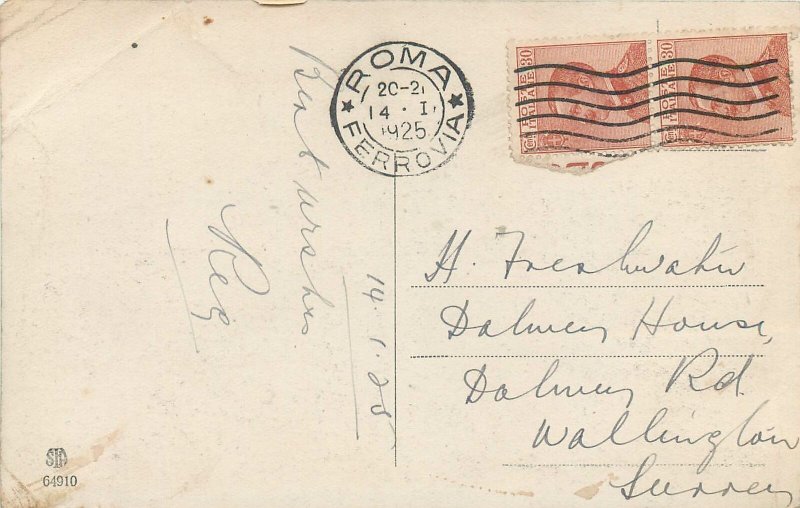 Best wishes
Reg
14.1.25
ROMA
20-21
14 · I
1925
FERROVIA
POSTE ITALIANE 30
POSTE ITALIANE 30
H. Freshwater
Dalmeny House,
Dalmeny Rd.
Wallington
Surrey
STA
64910